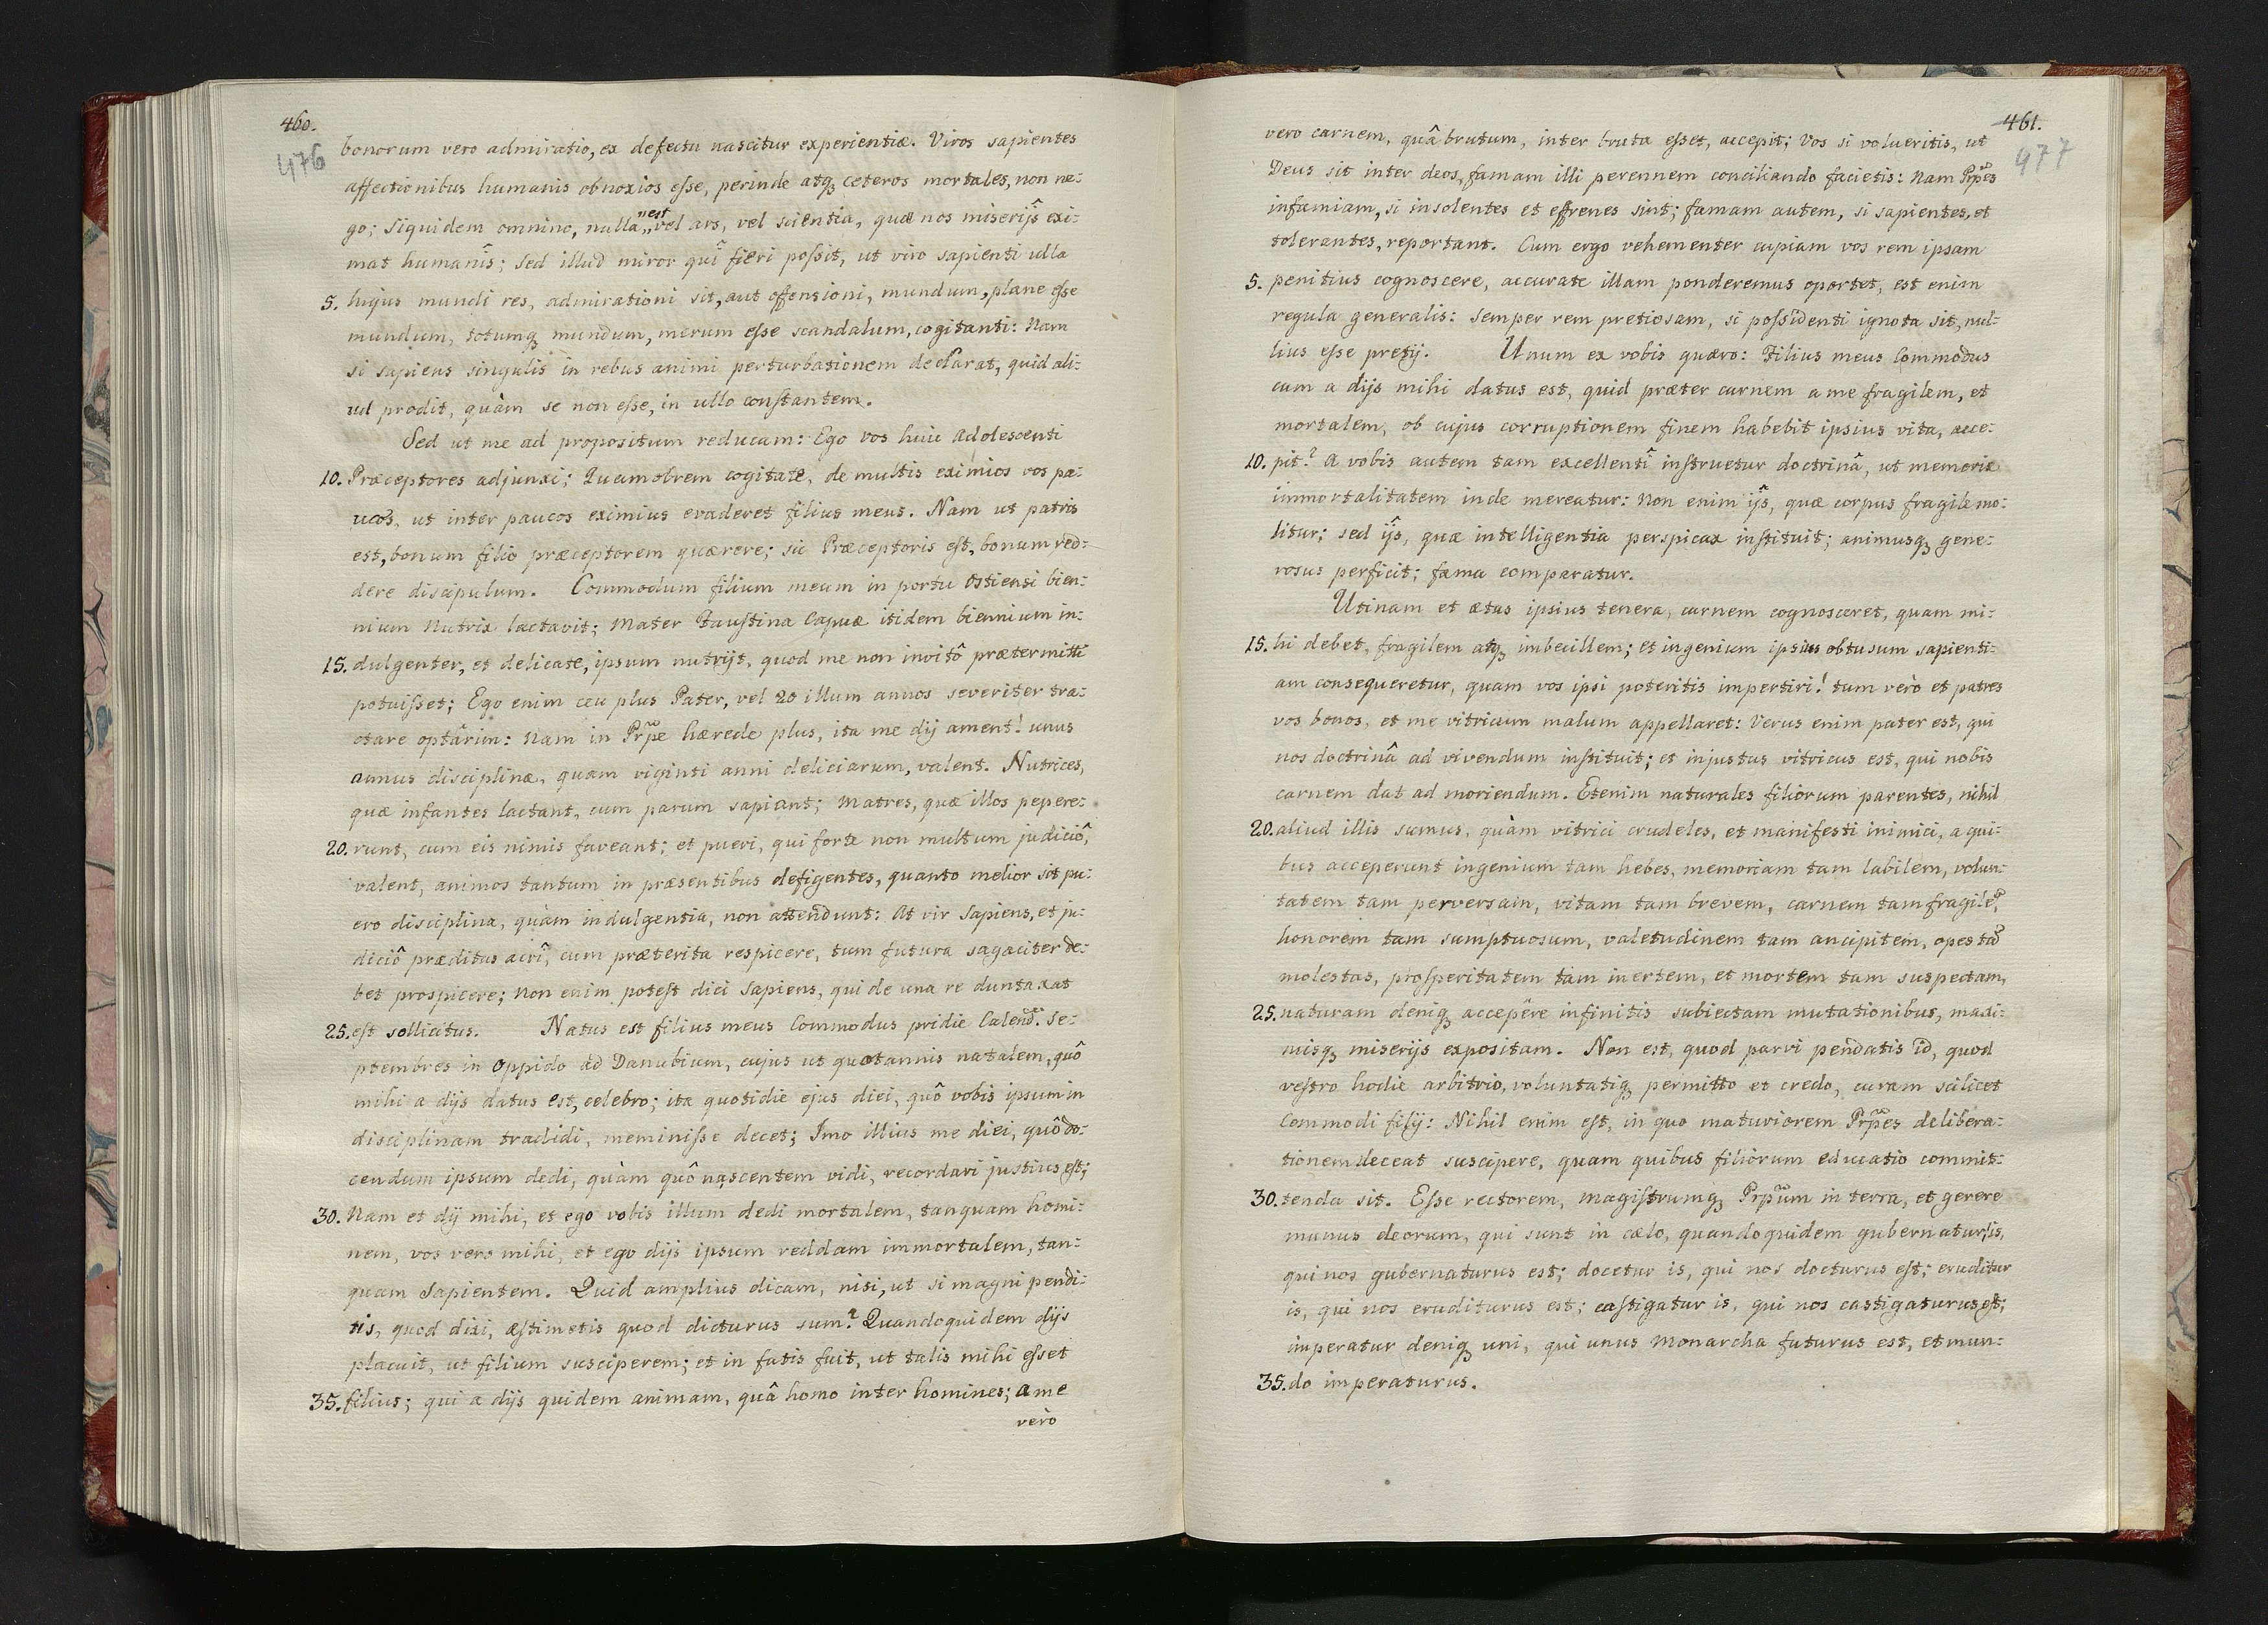 460.
476
bonorum vero admiratio, ex defectu nascitur experientiæ. Viros sapientes
affectionibus humanis obnoxios esse, perinde atq₃ ceteros mortales, non ne:
go; Siquidem omnino, nulla est vel ars, vel scientia, quæ nos miserijs exi:
mat humanîs; Sed illud miror quî fieri possit, ut viro sapienti ulla
5. hujus mundi res, admirationi sit, aut offensioni, mundum, plane esse
mundum, totumq₃ mundum, merum esse scandalum, cogitanti: Nam
si sapiens singulis in rebus animi perturbationem declarat, quid ali:
ud prodit, quàm se non esse, in ullo constantem.
Sed ut me ad propositum reducam: Ego vos huic Adolescenti
10. Præceptores adjunxi; Quamobrem cogitate, de multis eximios vos pa:
ucos, ut inter paucos eximius evaderet filius meus. Nam ut patris
est, bonum filio præceptorem quærere; sic Præceptoris est, bonum red:
dere discipulum. Commodum filium meum in portu Ostiensi bien:
nium Nutrix lactavit; Mater Faustina Capuæ itidem biennium in:
15. dulgenter, et delicate, ipsum nutrijt, quod me non invitô prætermitti
potuisset; Ego enim ceu pius Pater, vel 20 illum annos severiter tra:
ctare optârim: Nam in Prp̃e hærede plus, ita me dij ament! unus
annus disciplinæ, quam viginti anni deliciarum, valent. Nutrices,
quæ infantes lactant, cum parum sapiant; Matres, quæ illos pepere:
20. runt, cum eis nimis faveant; et pueri, qui forte non multum judiciô,
valent, animos tantum in præsentibus defigentes, quanto melior sit pu:
ero disciplina, quàm indulgentia, non attendunt: At vir Sapiens, et ju:
diciô præditus acrî, cum præterita respicere, tum futura sagaciter de:
bet prospicere; Non enim potest dici Sapiens, qui de una re duntaxat
25. est sollicitus. Natus est filius meus Commodus pridie Calend: Se:
ptembres in Oppido ad Danubium, cujus ut quotannis natalem, quô
mihi a dijs datus est, celebro; ita quotidie ejus diei, quô vobis ipsum in
disciplinam tradidi, meminisse decet; Imo illius me diei, quô do:
cendum ipsum dedi, quàm quô nascentem vidi, recordari justius est;
30. Nam et dij mihi, et ego vobis illum dedi mortalem, tanquam homi:
nem, vos vero mihi, et ego dijs ipsum reddam immortalem, tan:
quam Sapientem. Quid amplius dicam, nisi, ut si magni pendi:
tis, quod dixi, æstimetis quod dicturus sum? Quandoquidem dijs
placuit, ut filium susciperem; et in fatis fuit, ut talis mihi esset
35. filius; qui a dijs quidem animam, quâ homo inter homines; a me
vero
461.
477
vero carnem, quâ brutum, inter bruta esset, accepit; Vos si volueritis, ut
Deus sit inter deos, famam illi perennem conciliando facietis: Nam Prp̃es
infamiam, si insolentes et effrenes sint; famam autem, si sapientes, et
tolerantes, reportant. Cum ergo vehementer cupiam vos rem ipsam
5. penitius cognoscere, accurate illam ponderemus oportet, est enim
regula generalis: Semper rem pretiosam, si possidenti ignota sit, nul:
lius esse pretij. Unum ex vobis quæro: Filius meus Commodus
cum a dijs mihi datus est, quid præter carnem a me fragilem, et
mortalem, ob cujus corruptionem finem habebit ipsius vita, acce:
10. pit? A vobis autem tam excellentî instruetur doctrinâ, ut memoriæ
immortalitatem inde mereatur: Non enim ijs, quæ corpus fragile mo:
litur; sed ijs, quæ intelligentia perspicax instituit; animusq₃ gene:
rosus perficit; fama comparatur.
Utinam et ætas ipsius tenera, carnem cognosceret, quam mi:
15. hi debet, fragilem atq₃ imbecillem; et ingenium ipsius obtusum sapienti:
am consequeretur, quam vos ipsi poteritis impertiri! tum vero et patres
vos bonos, et me vitricum malum appellaret: Verus enim pater est, qui
nos doctrinâ ad vivendum instituit; et injustus vitricus est, qui nobis
carnem dat ad moriendum. Etenim naturales filiorum parentes, nihil
20. aliud illis sumus, quàm vitrici crudeles, et manifesti inimici, a qui:
bus acceperunt ingenium tam hebes, memoriam tam labilem, volun:
tatem tam perversam, vitam tam brevem, carnem tam fragilẽ,
honorem tam sumptuosum, valetudinem tam ancipitem, opes tã
molestas, prosperitatem tam inertem, et mortem tam suspectam,
25. naturam deniq₃ accepêre infinitis subiectam mutationibus, maxi:
misq₃ miserijs expositam. Non est, quod parvi pendatis id, quod
vestro hodie arbitrio, voluntatiq₃ permitto et credo, curam scilicet
Commodi filij: Nihil enim est, in quo maturiorem Prp̃es delibera:
tionem deceat suscipere, quam quibus filiorum educatio commit:
30. tenda sit. Esse rectorem, magistrumq₃ Prp̃um in terra, et gerere
munus deorum, qui sunt in cælo, quandoquidem gubernatur is,
qui nos gubernaturus est; docetur is, qui nos docturus est; eruditur
is, qui nos eruditurus est; castigatur is, qui nos castigaturus est;
imperatur deniq₃ uni, qui unus Monarcha futurus est, et mun:
35. do imperaturus.